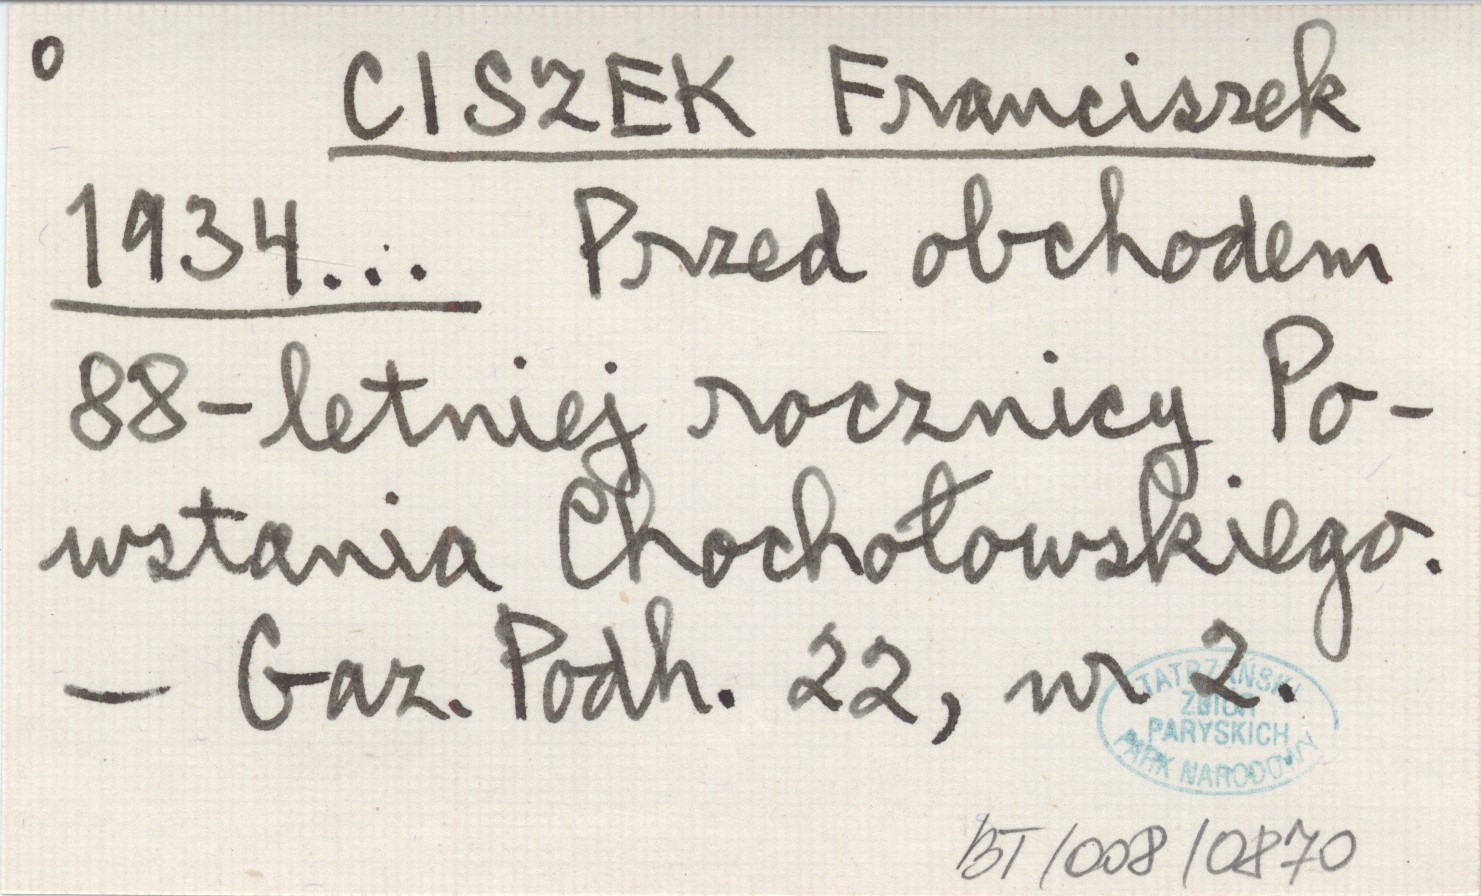 o CISZEK Franciszek
1934... Przed obchodem
88-letniej rocznicy Po-
wstania Chochołowskiego.
— Gaz. Podh. 22, nr 2.
TATRZAŃSKI
ZBIÓR
PARYSKICH
PARK NARODOWY
BT/008/0870